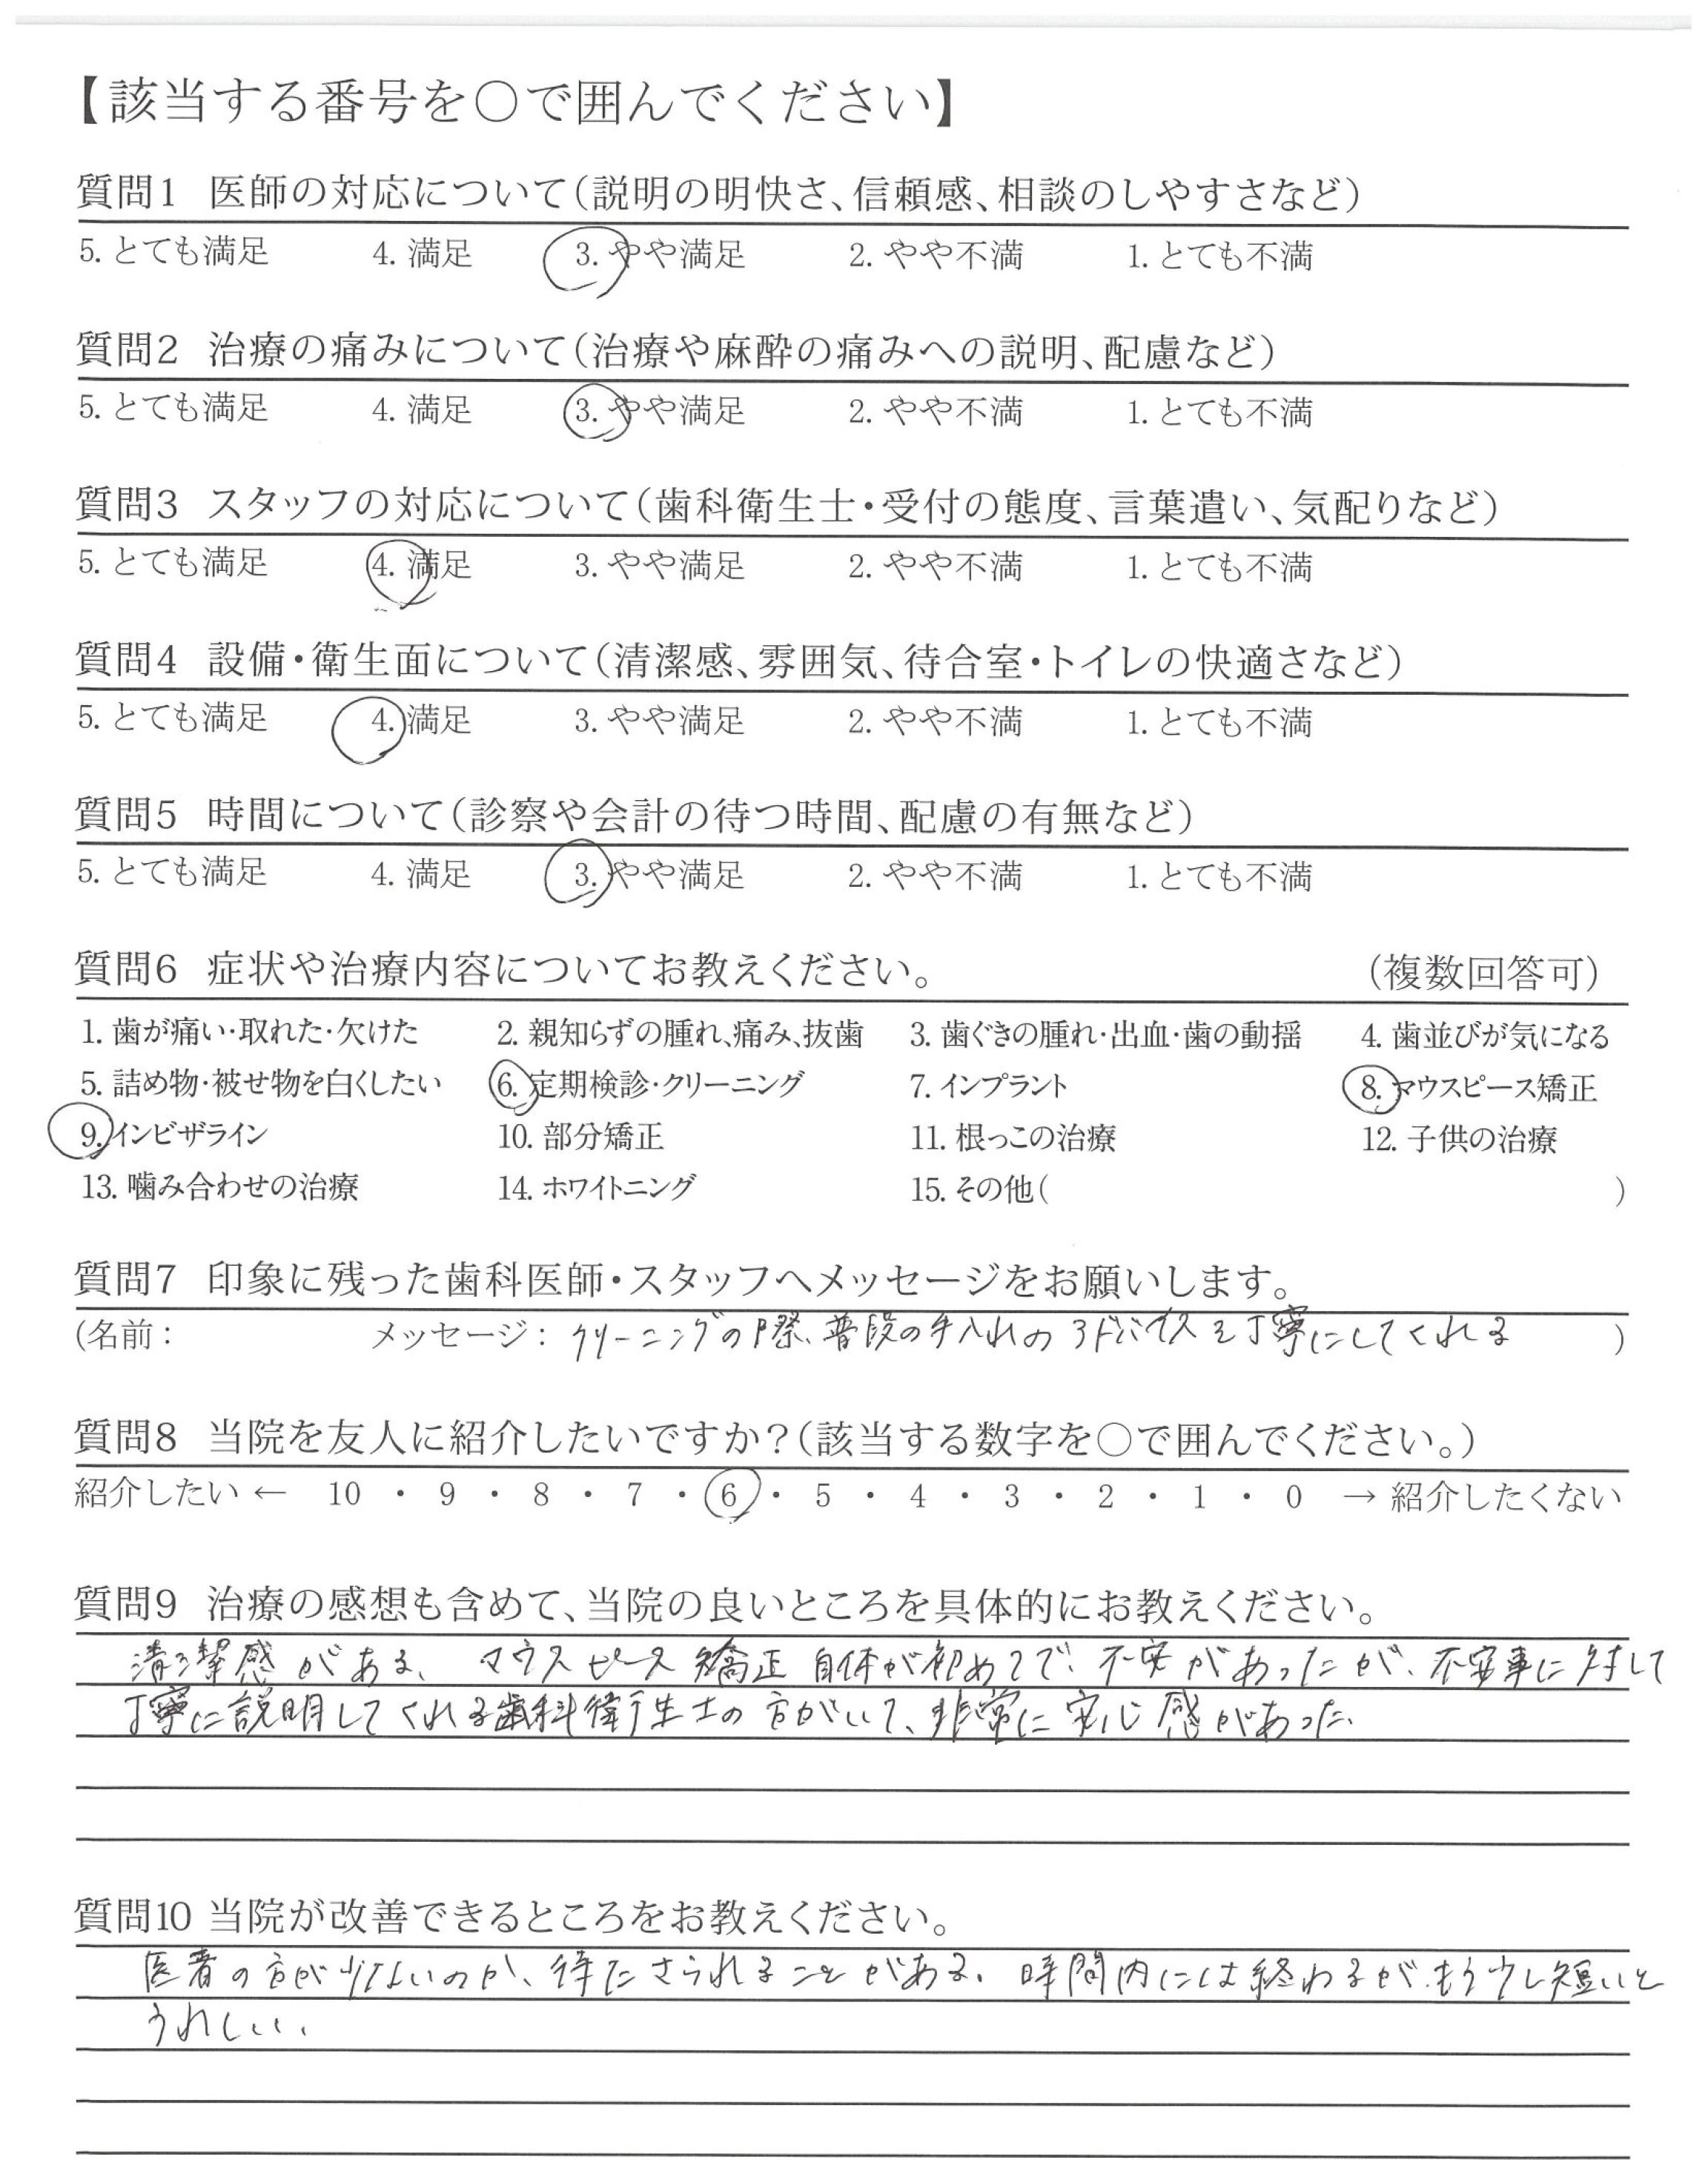 【該当する番号を○で囲んでください】
質問1 医師の対応について(説明の明快さ、信頼感、相談のしやすさなど)
5. とても満足 4. 満足 3. やや満足 2. やや不満 1. とても不満
質問2 治療の痛みについて(治療や麻酔の痛みへの説明、配慮など)
5. とても満足 4. 満足 3. やや満足 2. やや不満 1. とても不満
質問3 スタッフの対応について(歯科衛生士・受付の態度、言葉遣い、気配りなど)
5. とても満足 4. 満足 3. やや満足 2. やや不満 1. とても不満
質問4 設備・衛生面について(清潔感、雰囲気、待合室・トイレの快適さなど)
5. とても満足 4. 満足 3. やや満足 2. やや不満 1. とても不満
質問5 時間について(診察や会計の待つ時間、配慮の有無など)
5. とても満足 4. 満足 3. やや満足 2. やや不満 1. とても不満
質問6 症状や治療内容についてお教えください。 (複数回答可)
1. 歯が痛い・取れた・欠けた 2. 親知らずの腫れ、痛み、抜歯 3. 歯ぐきの腫れ・出血・歯の動揺 4. 歯並びが気になる
5. 詰め物・被せ物を白くしたい 6. 定期検診・クリーニング 7. インプラント 8. マウスピース矯正
9. インビザライン 10. 部分矯正 11. 根っこの治療 12. 子供の治療
13. 噛み合わせの治療 14. ホワイトニング 15. その他( )
質問7 印象に残った歯科医師・スタッフへメッセージをお願いします。
(名前: メッセージ: クリーニングの際、普段の手入れのアドバイスを丁寧にしてくれる )
質問8 当院を友人に紹介したいですか?(該当する数字を○で囲んでください。)
紹介したい ← 10 ・ 9 ・ 8 ・ 7 ・ 6 ・ 5 ・ 4 ・ 3 ・ 2 ・ 1 ・ 0 → 紹介したくない
質問9 治療の感想も含めて、当院の良いところを具体的にお教えください。
清潔感がある、マウスピース矯正自体が初めてで、不安があったが、不安事に対して
丁寧に説明してくれる歯科衛生士の方がいて、非常に安心感があった、
質問10 当院が改善できるところをお教えください。
医者の方が少ないのか、待たさられることがある。時間内には終わるが、もう少し短いと
うれしい、